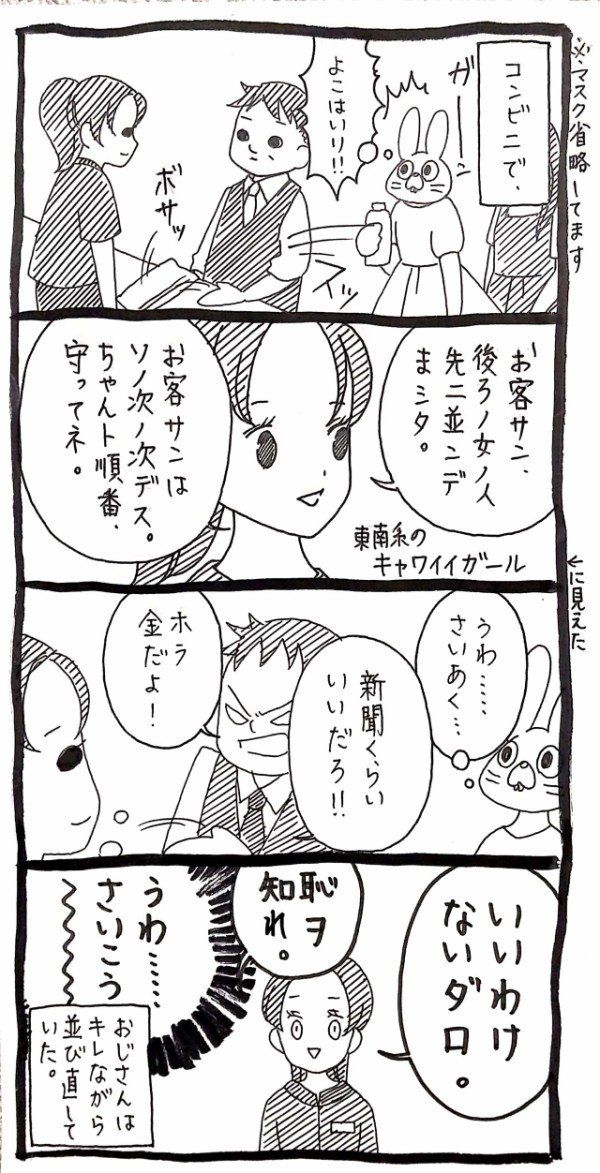 ※マスク省略してます
コンビニで、
ガーーン
よこはいり!!
ボサッ
スイッ
お客サン、
後ろノ女ノ人
先ニ並ンデ
まミタ。
お客サンは
ソノ次ノ次デス。
ちゃんト順番、
守ってネ。
東南系の
キャワイイガール
←に見えた
うわ……
さいあく…
新聞くらい
いいだろ!!
ホラ
金だよ!
いいわけ
ないダロ。
恥ヲ
知れ。
うわ……
さいこう
おじさんは
キレながら
並び直して
いた。